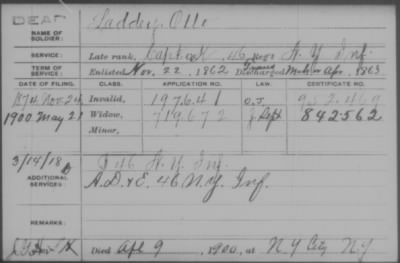 DEAF
NAME OF SOLDIER: Olle
SERVICE: Late rank, Capt Co K, 46 Reg't N.Y. Inf.
TERM OF SERVICE: Enlisted Nov. 22, 1862 Discharged Apr. 1863
DATE OF FILING. CLASS. APPLICATION NO. LAW. CERTIFICATE NO.
1874 Nov. 24 Invalid, 197641
1900 May 21 Widow, 719672 842562
Minor,
ADDITIONAL SERVICES: 46 N.Y. Inf.
A.D. & E, 46 N.Y. Inf.
REMARKS:
Died Apl 9, 1900, at N Y City N.Y